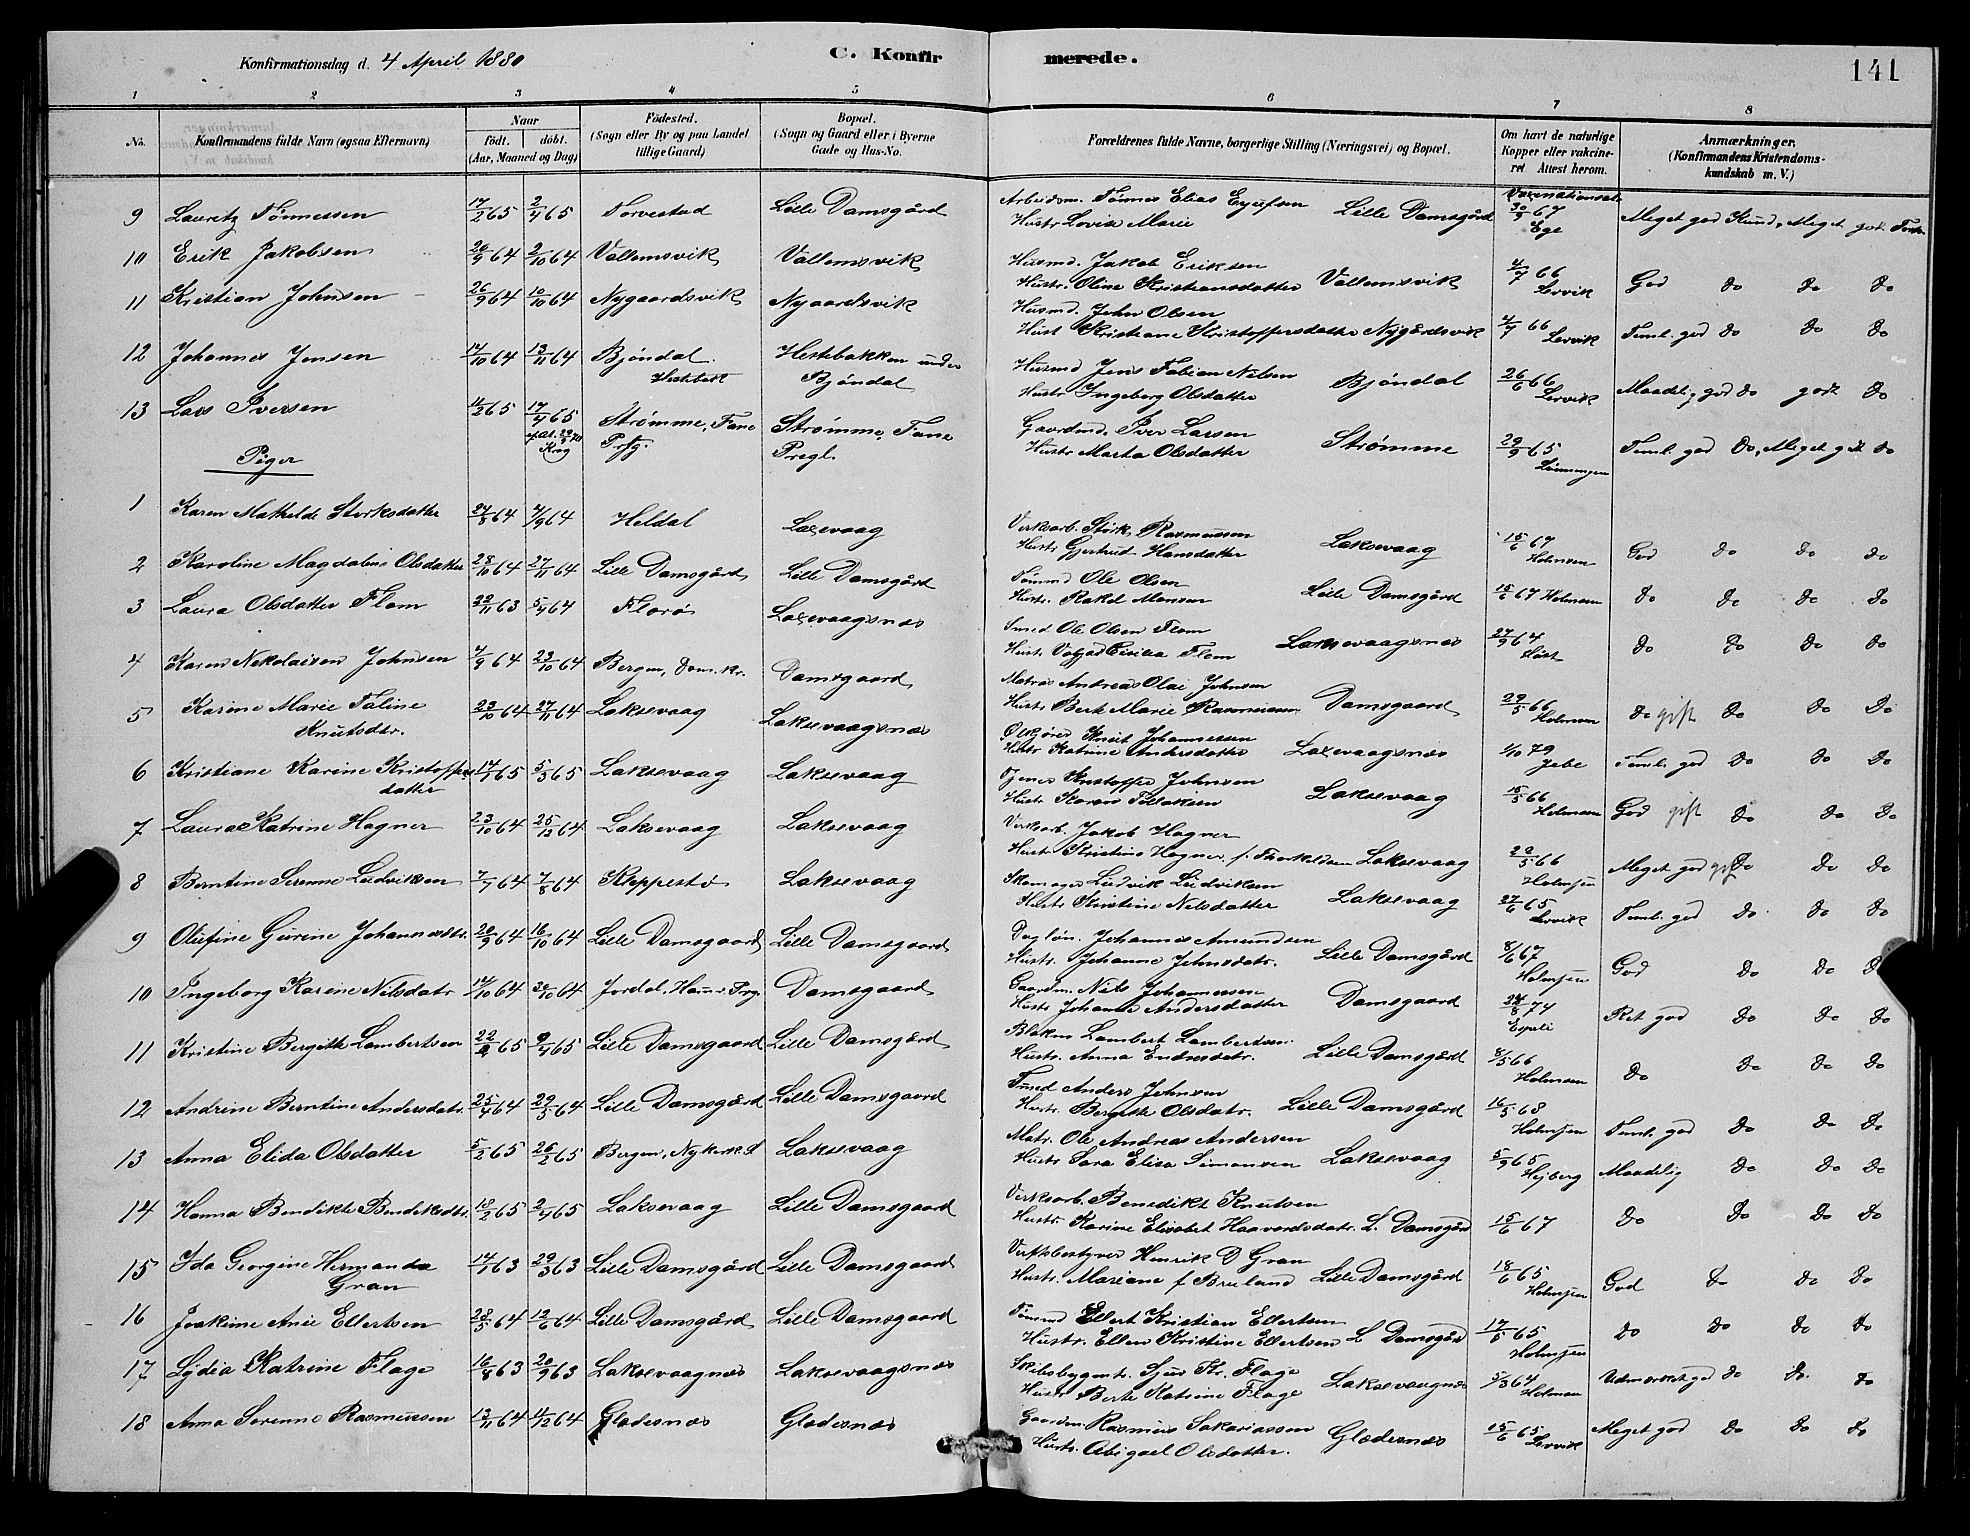 Konfirmationsdag d. 4 April 1880
C. Konfirmerede.
141
1 2 3 4 5 6 7 8
No. Konfirmandens fulde Navn (ogsaa Efternavn) Naar født. døbt. (Aar, Maaned og Dag) Fødested. (Sogn eller By og paa Landet tillige Gaard) Bopæl. (Sogn og Gaard eller i Byerne Gade og Hus-No. Forældrenes fulde Navne, borgerlige Stilling (Næringsvei) og Bopæl. Om havt de naturlige Kopper eller vakcineret Attest herom. Anmærkninger. (Konfirmandens Kristendomskundskab m. V.)
9 Lauritz Tønnessen 17/2 65 2/4 65 Torvestad Lille Damsgård Arbeidsm. Tønnes Elias
Hustr. Lovise Marie Lille Damsgård 30/9 67 Ege Meget god Kund. Meget god
10 Erik Jakobsen 20/9 64 2/10 64 Vallemsvik Vallemsvik Husmd. Jakob Eriksen
Hustr. Oline Kristiansdatter Vallemsvik 4/7 66 Lervik God do do do
11 Kristian Johnsen 26/9 64 10/10 64 Nygaardsvik Nygaardsvik Husmd. John Olsen
Hust Kristiane Kristoffersdatter Nygårdsvik 4/7 66 Lervik Teml. god do do do
12 Johannes Jensen 14/10 64 13/11 64 Bjøndal Hestebakken under Bjøndal Husmd Jens Fabian Nilsen
Hustr. Ingeborg Olsdatter Bjøndal 26/6 66 Lervik Maadelig god do godt do
13 Lars Iversen 4/2 65 17/4 65 Strømme, Fane Prfg. Strømme, Fane Pregl. Gaardmd. Iver Larsen
Hustr Marta Olsdatter Strømme 29/9 65 Teml. god do, Meget godt do
Piger
1 Karen Mathilde Størksdatter 24/8 64 4/9 64 Heldal Laxevaag Verksarb. Størk Rasmussen
Hustr Gjertrud Hansdatter Laksevaag 15/6 67 Holmsen God do do do
2 Karoline Magdalene Olsdatter 28/10 64 27/11 64 Lille Damsgård Lille Damsgård Tømmd Ole Olsen
Hustr. Rakel Monsen Lille Damsgård 15/6 67 Holmsen do do do do
3 Laura Olsdatter Flom 22/11 63 5/4 64 Florø Laxevaagsnes Smed Ole Olsen Flom
Hustr. Flom Laksevaagsnes 27/9 64 do do do do
4 Karen Nekolaisen Johnsen 4/9 64 23/10 64 Bergen, Dom.kr. Damsgaard Matros Andreas Olai Johnsen
Hustr. Bert Marie Rasmussen Damsgaard 29/5 66 Holmsen do gift do do do
5 Karine Marie Taline Knutsdtr. 23/10 64 27/11 64 Laksevaag Laksevaagsnes Knut Johannessen
Hustr Katrine Andersdatter Laxevaagsnes 1/10 79 Jebe Teml. god do do do
6 Kristiane Karine Kristoffersdatter 14/1 65 5/3 65 Laksevaag Laksevaag Kristoffer Johnsen
Hustr Karen Laksevaag 15/5 66 Holmsen God gift do do do
7 Laura Katrine Hagner 23/10 64 25/12 64 Laksevaag Laksevaag Verksarb. Jakob Hagner
Hustr Kristine Hagner f. Laksevaag 22/5 66 Holmsen Meget god gift do do do
8 Berntine Serenne Ludviksen 7/7 64 7/8 64 Kleppestø Laksevaag Skomager Ludvik Ludviksen
Hustr Kristine Nilsdatter Laksevaag 27/6 65 Lervik Teml. god do do do
9 Olufine Gurine Johannesdtr. 20/9 64 16/10 64 Lille Damsgaard Lille Damsgaard Dagløn. Johannes Amundsen
Hustr. Johanne Johnsdatr. Lille Damsgård 8/6 67 Holmsen God do do do
10 Ingeborg Karine Nilsdatr 14/10 64 30/10 64 Jordal, Hammr Prg. Damsgaard Gaardm. Nils Johannessen
Hustr Johanne Andersdatter Damsgaard 24/8 74 Espeli Ret god do do do
11 Kristine Bergitte Lambertsen 22/2 65 9/4 65 Lille Damsgaard Lille Damsgård Lambert Lambertsen
Hustr. Anna Endresdatr. Lille Damsgård 8/5 66 Holmsen do do do do
12 Andrine Berntine Andersdatr. 25/4 64 29/5 64 Lille Damsgård Lille Damsgaard Anders Johnsen
Hustr. Bergitte Olsdatr. Lille Damsgård 16/5 68 Holmsen Teml. god do do do
13 Anna Elida Olsdatter 5/2 65 26/2 65 Bergen, Nykirk Laksevaag Matr. Ole Andreas Andersen
Hustr Sara Elisa Simonsen Laksevaag 5/9 65 Hejberg Maadelig do do do
14 Hanna Bendikte Bendiksdtr. 10/2 65 2/4 65 Laksevaag Lille Damsgaard Verksarb. Benedikt Knutsen
Hustr Karine Elisabet Haavardsdatr. L. Damsgård 15/6 67 do do do do
15 Ida Georgine Hermanda Gran 14/1 63 29/3 63 Lille Damsgård Lille Damsgaard Verksbestyrer Henrik D Gran
Hustr. Mariane f Bruland Lille Damsgård 18/6 65 Holmsen God do do do
16 Joakime Anie Ellertsen 28/5 64 12/6 64 Lille Damsgård Lille Damsgaard Tømmd Ellert Kristian Ellertsen
Hustr. Ellen Kristine Ellertsen L. Damsgård 17/5 65 Holmsen do do do do
17 Lydia Katrine Flage 16/8 63 20/9 63 Laksevaagnes Laksevaagsnes Skibsbygmstr. Sjur Th. Flage
Hustr Berte Katrine Flage Laksevaagnes 5/3 64 Holmsen Udmerket god do do. do
18 Anna Serenne Rasmussen 13/11 64 4/12 64 Gladesnes Gladesnes Gaardm. Rasmus Sakariassen
Hustr. Abigael Olsdatter. Gladesnes 15/6 65 Lervik Meget god do do do